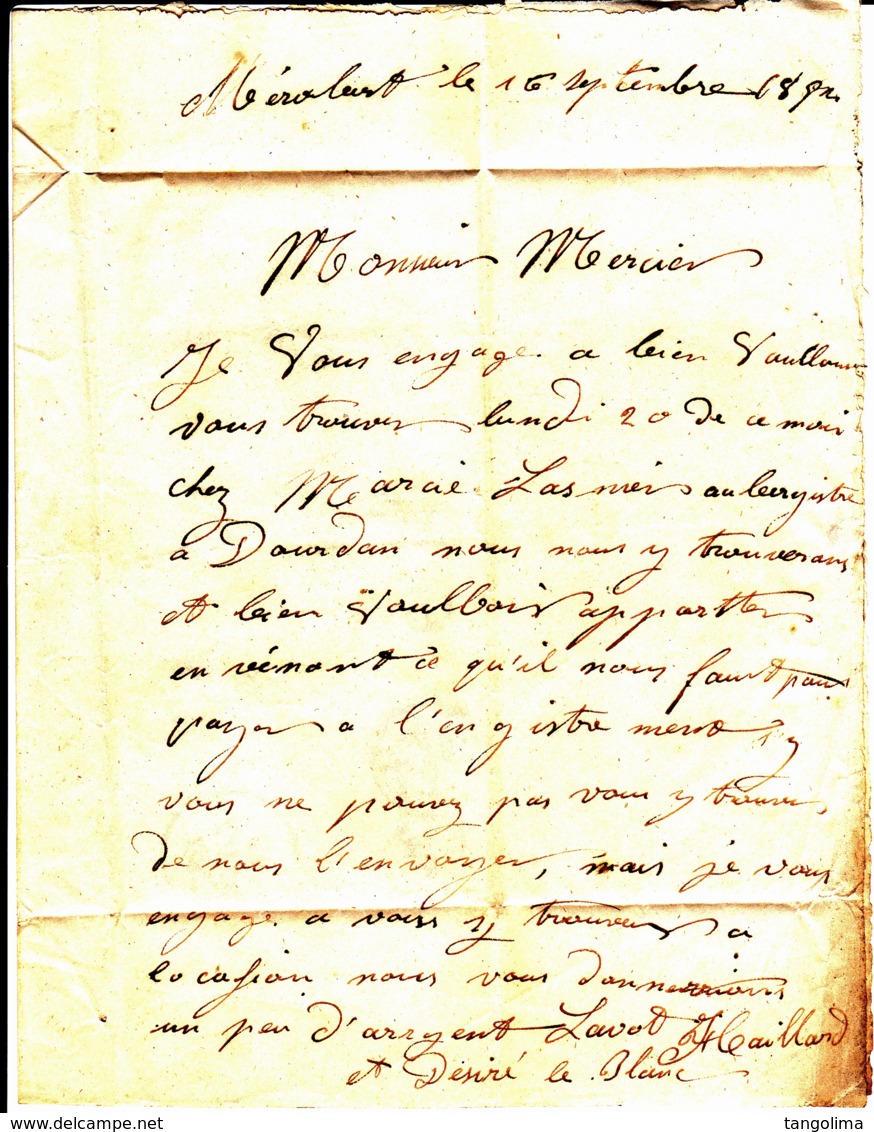 Mérobert le 16 Septembre 185
Monsieur Mercier
Je Vous engage a bien Voulloir
vous trouver lundi 20 de ce mois
chez Marcie Lasnier aubergistre
a Dourdan nous nous y trouverons
et bien Voulloir apportter
en vénant ce qu'il nous faut pour
payer a l'engistrement sy
vous ne pouvez pas vous y trouver
de nous l'envoyer, mais je vous
engage a vous y trouver a
locasion nous vous donnerions
un peu d'argent Lavot Haillard
et Désiré le Blanc
tangolima